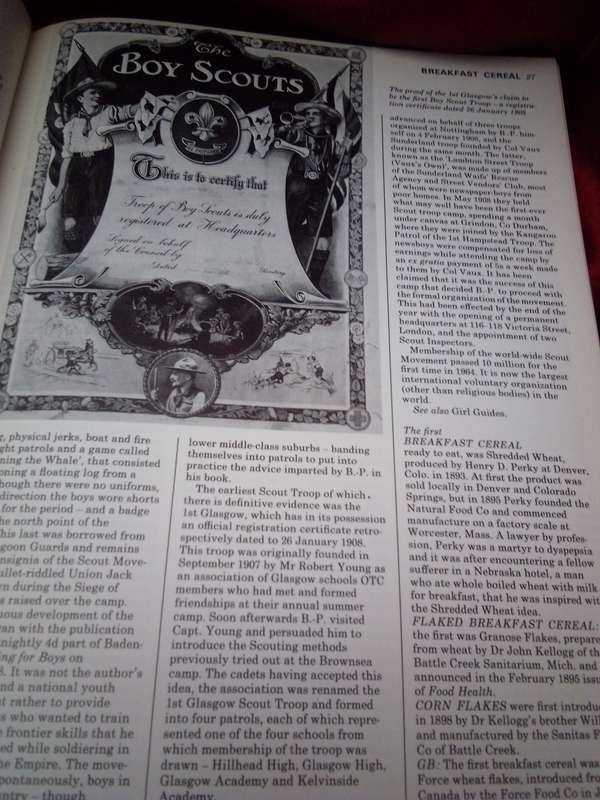 The
BOY SCOUTS
This is to certify that
Troop of Boy Scouts is duly
registered at Headquarters
Signed on behalf
of the Council by
Dated
BREAKFAST CEREAL 37
The proof of the 1st Glasgow's claim to
be the first Boy Scout Troop – a registra-
tion certificate dated 26 January 1908
, physical jerks, boat and fire
ght patrols and a game called
ning the Whale', that consisted
oning a floating log from a
hough there were no uniforms,
direction the boys wore shorts
for the period – and a badge
he north point of the
his last was borrowed from
goon Guards and remains
nsignia of the Scout Move-
ullet-riddled Union Jack
wn during the Siege of
s raised over the camp.
uous development of the
an with the publication
nightly 4d part of Baden-
ing for Boys on
8. It was not the author's
nd a national youth
t rather to provide
s who wanted to train
e frontier skills that he
ed while soldiering in
he Empire. The move-
pontaneously, boys in
ntry – though
lower middle-class suburbs – banding
themselves into patrols to put into
practice the advice imparted by B.-P. in
his book.
The earliest Scout Troop of which
there is definitive evidence was the
1st Glasgow, which has in its possession
an official registration certificate retro-
spectively dated to 26 January 1908.
This troop was originally founded in
September 1907 by Mr Robert Young as
an association of Glasgow schools OTC
members who had met and formed
friendships at their annual summer
camp. Soon afterwards B.-P. visited
Capt. Young and persuaded him to
introduce the Scouting methods
previously tried out at the Brownsea
camp. The cadets having accepted this
idea, the association was renamed the
1st Glasgow Scout Troop and formed
into four patrols, each of which repre-
sented one of the four schools from
which membership of the troop was
drawn – Hillhead High, Glasgow High,
Glasgow Academy and Kelvinside
Academy.
advanced on behalf of three troops
organised at Nottingham by B. P. him-
self on 4 February 1908, and the
Sunderland troop founded by Col Vaux
during the same month. The latter,
known as the 'Lambton Street Troop
(Vaux's Own)', was made up of members
of the Sunderland Waifs' Rescue
Agency and Street Vendors' Club, most
of whom were newspaper boys from
poor homes. In May 1908 they held
what may well have been the first-ever
Scout troop camp, spending a month
under canvas at Grindon, Co Durham,
where they were joined by the Kangaroo
Patrol of the 1st Hampstead Troop. The
newsboys were compensated for loss of
earnings while attending the camp by
an ex gratia payment of 5s a week made
to them by Col Vaux. It has been
claimed that it was the success of this
camp that decided B.-P. to proceed with
the formal organization of the movement.
This had been effected by the end of the
year with the opening of a permanent
headquarters at 116–118 Victoria Street,
London, and the appointment of two
Scout Inspectors.
Membership of the world-wide Scout
Movement passed 10 million for the
first time in 1964. It is now the largest
international voluntary organization
(other than religious bodies) in the
world.
See also Girl Guides.
The first
BREAKFAST CEREAL
ready to eat, was Shredded Wheat,
produced by Henry D. Perky at Denver,
Colo. in 1893. At first the product was
sold locally in Denver and Colorado
Springs, but in 1895 Perky founded the
Natural Food Co and commenced
manufacture on a factory scale at
Worcester, Mass. A lawyer by profes-
sion, Perky was a martyr to dyspepsia
and it was after encountering a fellow
sufferer in a Nebraska hotel, a man
who ate whole boiled wheat with milk
for breakfast, that he was inspired wit
the Shredded Wheat idea.
FLAKED BREAKFAST CEREAL:
the first was Granose Flakes, prepare
from wheat by Dr John Kellogg of th
Battle Creek Sanitarium, Mich. and
announced in the February 1895 issu
of Food Health.
CORN FLAKES were first introduc
in 1898 by Dr Kellogg's brother Will
and manufactured by the Sanitas F
Co of Battle Creek.
GB: The first breakfast cereal was
Force wheat flakes, introduced fro
Canada by the Force Food Co in J